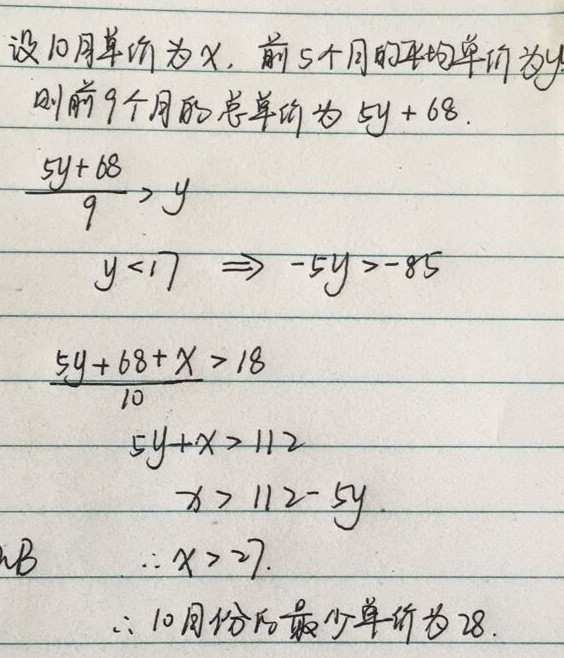 设10月单价为x. 前5个月的平均单价为y.
则前9个月的总单价为 5y+68.
5y+68
9
> y
y<17 ⇒ -5y>-85
5y+68+x
10
> 18
5y+x>112
x>112-5y.
B ∴ x>27.
∴ 10月份的最少单价为28.